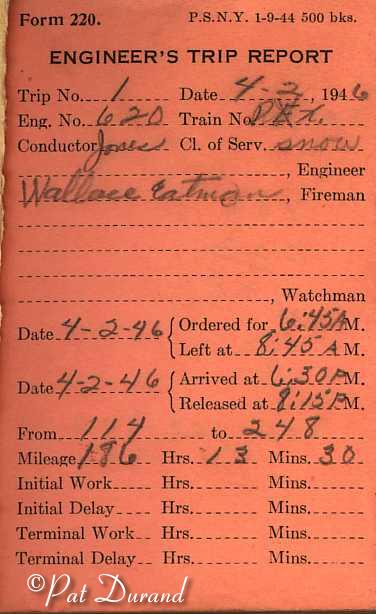 Form 220. P.S.N.Y. 1-9-44 500 bks.
ENGINEER'S TRIP REPORT
Trip No. 1 Date 4-2, 1946
Eng. No. 620 Train No.
Conductor Jones Cl. of Serv. snow
, Engineer
Wallace Eatman, Fireman
, Watchman
Date 4-2-46 { Ordered for 6:45 A M.
Left at 8:45 A M.
Date 4-2-46 { Arrived at 6:30 P M.
Released at 8:15 P M.
From 114 to 248
Mileage 186 Hrs. 13 Mins. 30
Initial Work Hrs. Mins.
Initial Delay Hrs. Mins.
Terminal Work Hrs. Mins.
Terminal Delay Hrs. Mins.
©Pat Durand